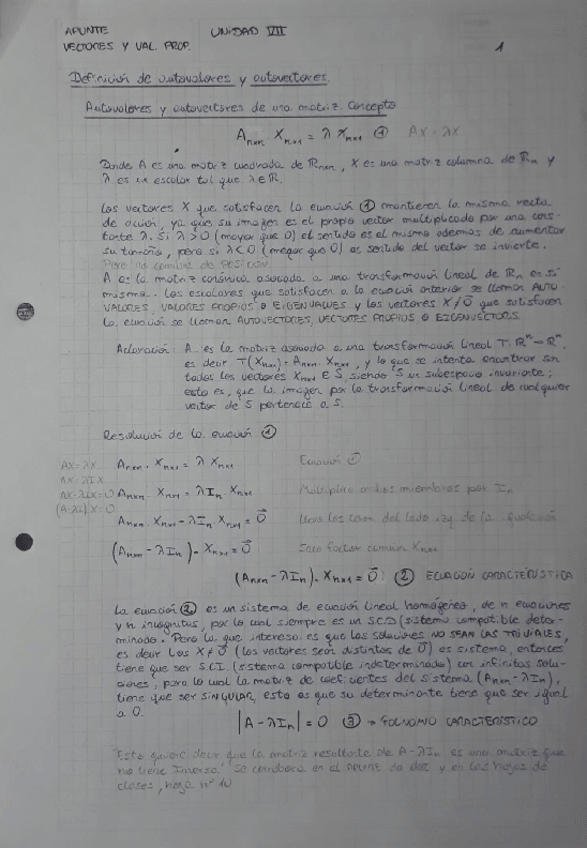 APUNTE UNIDAD VII
VECTORES Y VAL. PROP. 1
Definición de autovalores y autovectores.
Autovalores y autovectores de una matriz. Concepto
Anxn Xnx1 = λ Xnx1 ① AX = λX
Donde A es una matriz cuadrada de Rnxn, X es una matriz columna de Rn y
λ es un escalar tal que λ∈R.
Los vectores X que satisfacen la ecuación ① mantienen la misma recta
de acción, ya que su imagen es el propio vector multiplicado por una cons-
tante λ. Si λ>0 (mayor que 0) el sentido es el mismo ademas de aumentar
su tamaño, pero si λ<0 (menor que 0) el sentido del vector se invierte.
Pero no cambia de POSICIÓN.
A es la matriz canónica asociada a una transformación lineal de Rn en si
misma. Los escalares que satisfacen a la ecuación anterior se llaman AUTO-
VALORES, VALORES PROPIOS o EIGENVALUES y los vectores X≠0⃗ que satisfacen
la ecuación se llaman AUTOVECTORES, VECTORES PROPIOS o EIGENVECTORS.
Aclaración: A es la matriz asociada a una transformación lineal T: Rⁿ→Rⁿ.
es decir T(Xnx1) = Anxn . Xnx1, y lo que se intenta encontrar son
todos los vectores Xnx1 ∈ S, siendo S un subespacio invariante;
esto es, que la imagen por la transformación lineal de cualquier
vector de S pertenece a S.
Resolución de la ecuación ①
AX = λX Anxn . Xnx1 = λ Xnx1 Ecuación ①
AX = λIX
AX - λIX = 0 Anxn . Xnx1 = λ In . Xnx1 Multiplico ambos miembros por In
(A-λI).X = 0
Anxn . Xnx1 - λIn Xnx1 = 0⃗ Llevo los term del lado izq de la igualdad
(Anxn - λIn) . Xnx1 = 0⃗ Saco factor común Xnx1
(Anxn - λIn) . Xnx1 = 0⃗ : ② ECUACIÓN CARACTERÍSTICA
La ecuación ② es un sistema de ecuación lineal homogéneo, de n ecuaciones
y n incognitas, por lo cual siempre es un S.C.D (sistema compatible deter-
minado. Pero lo que interesa es que las soluciones NO SEAN LAS TRIVIALES,
es decir los X≠0⃗ (los vectores sean distintos de 0⃗) es sistema, entonces
tiene que ser S.C.I. (sistema compatible indeterminado) con infinitas solu-
ciones, para lo cual la matriz de coeficientes del sistema (Anxn - λIn),
tiene que ser SINGULAR, esto es que su determinante tiene que ser igual
a 0.
|A - λIn| = 0 ③ → POLINOMIO CARACTERÍSTICO
"Esto quiere decir que la matriz resultante de A-λIn es una matriz que
no tiene Inversa" Se corrobora en el apunte de
clases, hoja nº 10